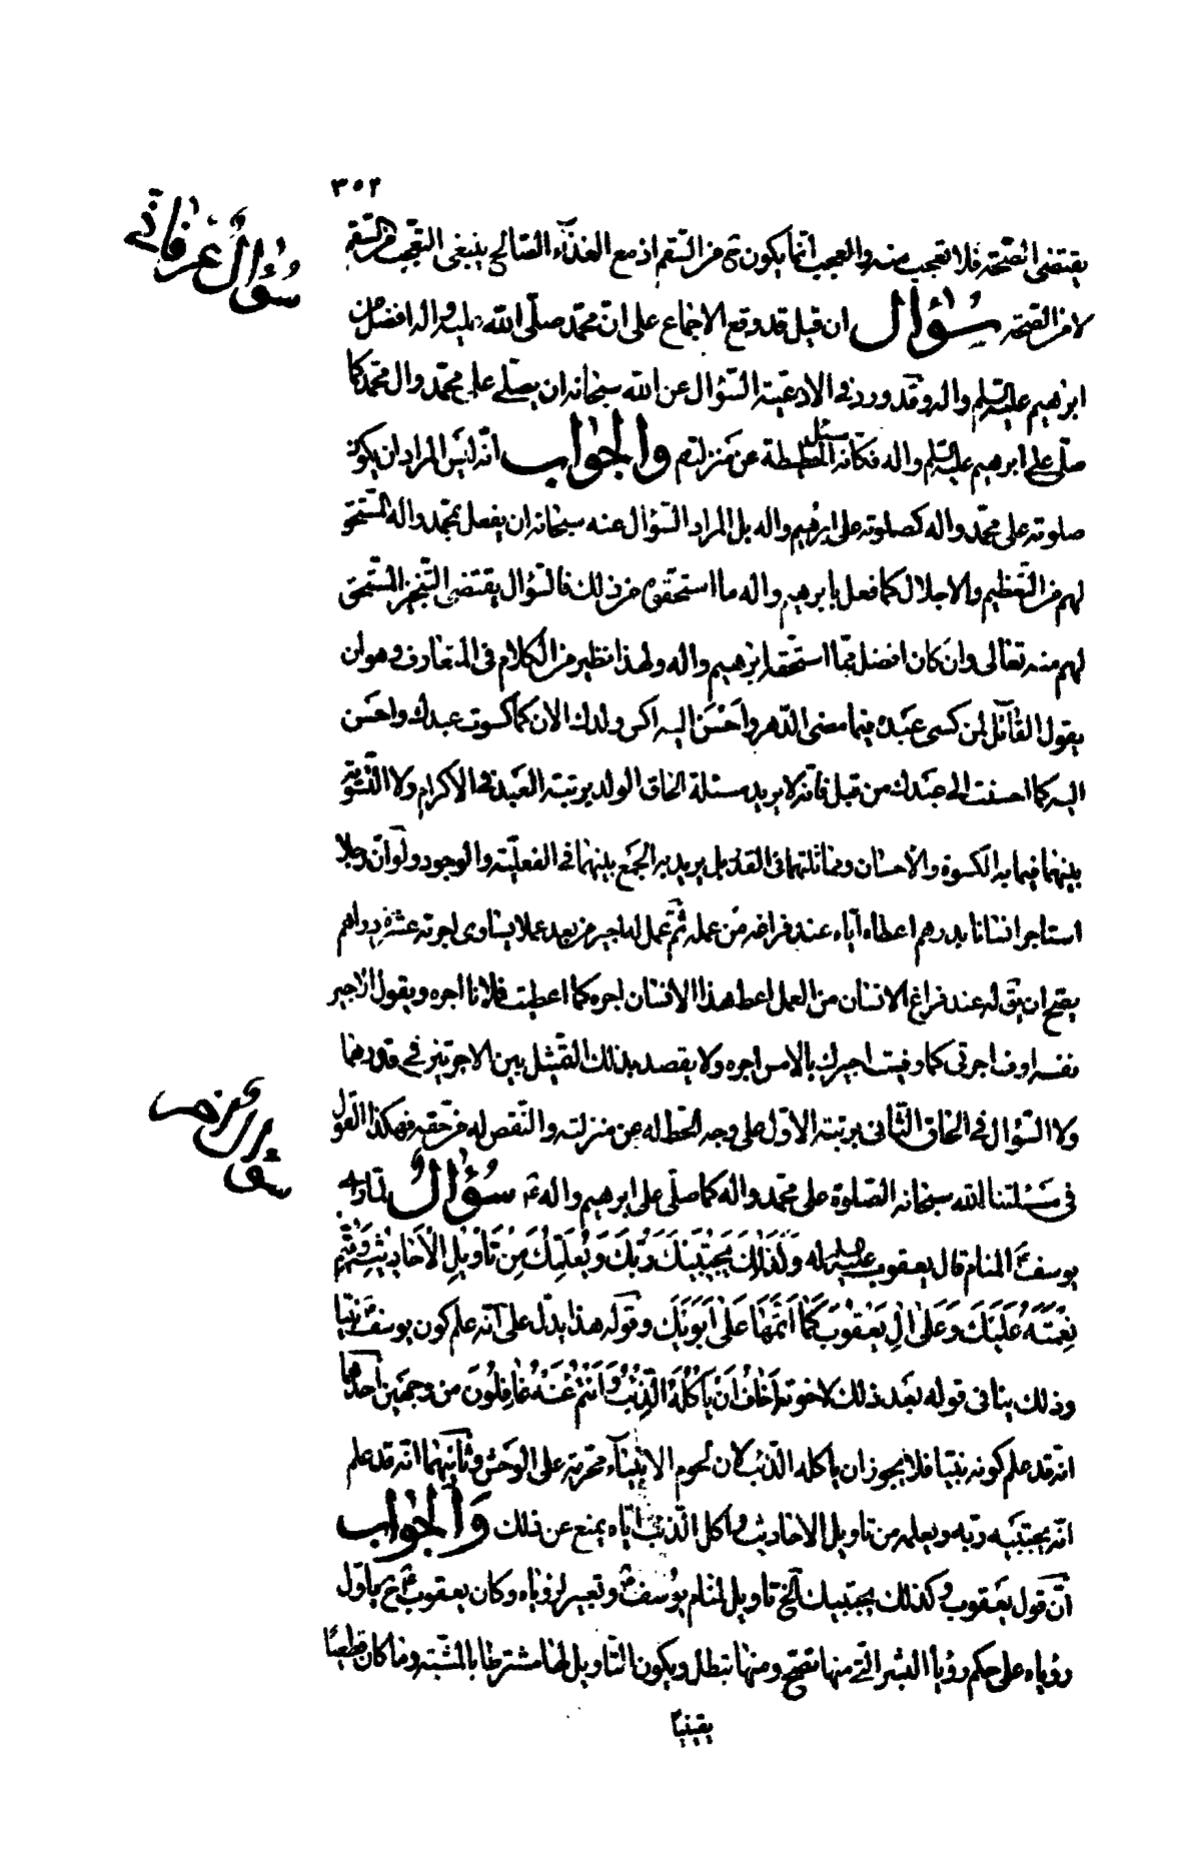 ٣٥٢
سؤال عرفاني
يقتضى الصّحّة فلا تعجب منه والعجب انّما يكون من السّقم اذ مع الغذآء الصّالح ينبغى التعجّب من السّقم
لا من الصّحّة سُؤال ان قيل قد وقع الاجماع على انّ محمّد صلّى الله عليه واله افضل من
ابرهيم عليه السلم واله وقد ورد فى الادعية السّؤال عن الله سبحانه ان يصلّى على محمّد وال محمّد كما
صلّى على ابرهيم عليه السلم واله فكانّه سئل الحطيطة عن منزلتهم والجواب انّه ليس المراد ان يكون
صلوته على محمّد واله كصلوته على ابرهيم واله بل المراد السّؤال عنه سبحانه ان يفعل بمحمّد واله المستحق
لهم من التعظيم والاجلال كما فعل بابرهيم واله ما استحقّوه من ذلك فالسّؤال يقتضى التّنجيز المستحق
لهم منه تعالى وان كان افضل ممّا استحقّه ابرهيم واله ولهذا نظير من الكلام فى المتعارف وهو ان
يقول القآئل لمن كسى عبده فيما مضى الدّهر واحسن اليه اكس ولدك الان كما كسوت عبدك واحسن
اليه كما احسنت الى عبدك من قبل فانّه لا يريد مسئلة الحاق الولد برتبة العبد فى الاكرام ولا التّسوية
بينهما فيما به الكسوة والاحسان ومماثلتهما فى القدر بل يريد به الجمع بينهما فى الفعليّة والوجود ولو انّ رجلا
استاجر انسانا بدرهم اعطاه ايّاه عند فراغه من عمله ثمّ عمل له اجير من بعد عملا يساوى اجرته عشرة دراهم
يصحّ ان يق له عند فراغ الانسان من العمل اعط هذا الانسان اجره كما اعطيت فلانا اجره ويقول الاجير
نفسه اوف اجرتى كما وفيت اجيرك بالامس اجره ولا يقصد بذلك التّمثيل بين الاجرتين فى قدرهما
ولا السّؤال فى الحاق الثّانى برتبة الاوّل على وجه الحطّ له عن منزلته والنّقص له من حقّه فهكذا القول
فى مسئلتنا لله سبحانه الصّلوة على محمّد واله كما صلّى على ابرهيم واله سُؤالٌ لمّا راى
يوسف المنام قال يعقوب عليه السلم له وَكَذٰلِكَ يَجْتَبِيكَ رَبُّكَ وَيُعَلِّمُكَ مِنْ تَأوِيلِ الْاَحَادِيثِ وَيُتِمُّ
نِعْمَتَهُ عَلَيْكَ وَعَلىٰ اٰلِ يَعْقُوبَ كَمٰا اَتَمَّهٰا عَلىٰ اَبَوَيْكَ وقوله هذا يدلّ على انّه علم كون يوسف نبيّا
وذلك ينافى قوله بعد ذلك لاخوته اَخٰافُ اَنْ يَأكُلَهُ الذِّئْبُ وَاَنْتُمْ عَنْهُ غٰافِلُونَ من وجهين احدهما
انّه قد علم كونه نبيّا فلا يجوز ان ياكله الذّئب لان لحوم الانبيآء محرّمة على الوحش وثانيهما انّه قد علم
انّه يجتبيه ربّه ويعلّمه من تاويل الاحاديث واكل الذّئب ايّاه يمنع عن ذلك وَالْجَواب
انّ قول يعقوب وكذلك يجتبيك الخ تاويل لمنام يوسف وتعبير لرؤياه وكان يعقوب تاوّل
رؤياه على حكم رؤيا البشر الّتى منها تصحّ ومنها تبطل ويكون التّاويل لها مشترطا بالمشيّة وما كان قطعيّا
يقينيّا